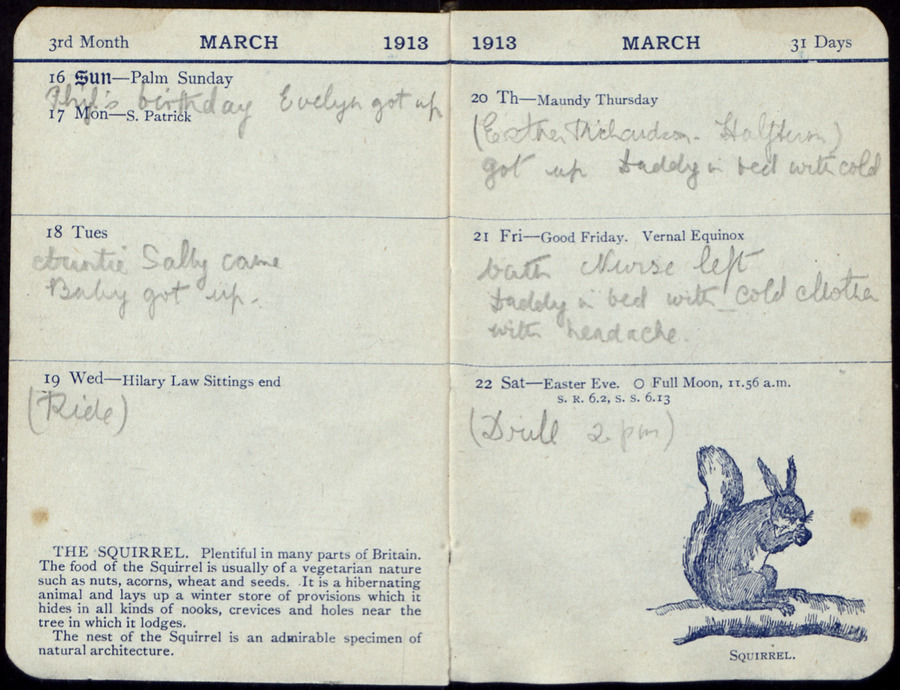 3rd Month MARCH 1913
16 Sun—Palm Sunday
Phyl's birthday Evelyn got up
17 Mon—S. Patrick
18 Tues
Auntie Sally came
Baby got up.
19 Wed—Hilary Law Sittings end
(Ride)
THE SQUIRREL. Plentiful in many parts of Britain.
The food of the Squirrel is usually of a vegetarian nature
such as nuts, acorns, wheat and seeds. It is a hibernating
animal and lays up a winter store of provisions which it
hides in all kinds of nooks, crevices and holes near the
tree in which it lodges.
The nest of the Squirrel is an admirable specimen of
natural architecture.
1913 MARCH 31 Days
20 Th—Maundy Thursday
(Esther Richardson. Halfterm)
got up Daddy in bed with cold
21 Fri—Good Friday. Vernal Equinox
bath Nurse left
Daddy in bed with cold Mother
with headache.
22 Sat—Easter Eve. O Full Moon, 11.56 a.m.
S. R. 6.2, S. S. 6.13
(Drill 2 pm)
SQUIRREL.